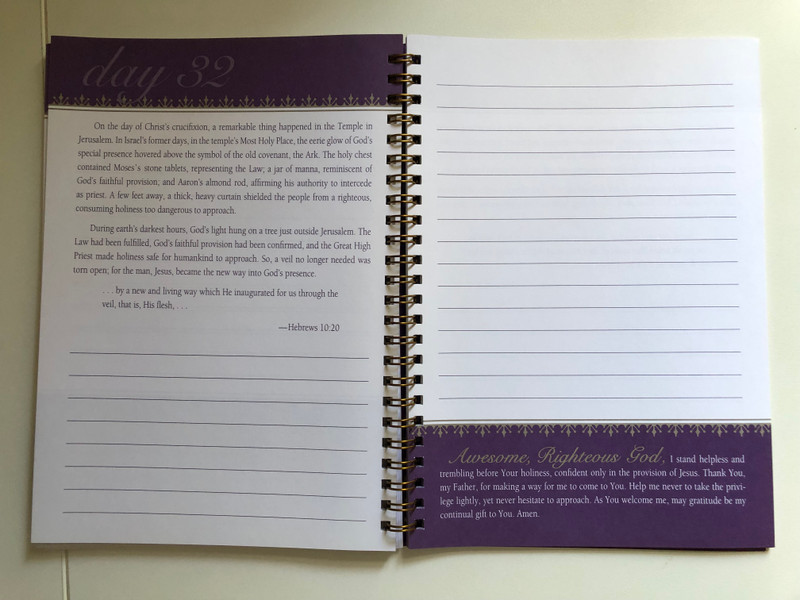 day 32
On the day of Christ's crucifixion, a remarkable thing happened in the Temple in
Jerusalem. In Israel's former days, in the temple's Most Holy Place, the eerie glow of God's
special presence hovered above the symbol of the old covenant, the Ark. The holy chest
contained Moses's stone tablets, representing the Law; a jar of manna, reminiscent of
God's faithful provision; and Aaron's almond rod, affirming his authority to intercede
as priest. A few feet away, a thick, heavy curtain shielded the people from a righteous,
consuming holiness too dangerous to approach.
During earth's darkest hours, God's light hung on a tree just outside Jerusalem. The
Law had been fulfilled, God's faithful provision had been confirmed, and the Great High
Priest made holiness safe for humankind to approach. So, a veil no longer needed was
torn open; for the man, Jesus, became the new way into God's presence.
. . . by a new and living way which He inaugurated for us through the
veil, that is, His flesh, . . .
—Hebrews 10:20
Awesome, Righteous God, I stand helpless and
trembling before Your holiness, confident only in the provision of Jesus. Thank You,
my Father, for making a way for me to come to You. Help me never to take the privi-
lege lightly, yet never hesitate to approach. As You welcome me, may gratitude be my
continual gift to You. Amen.